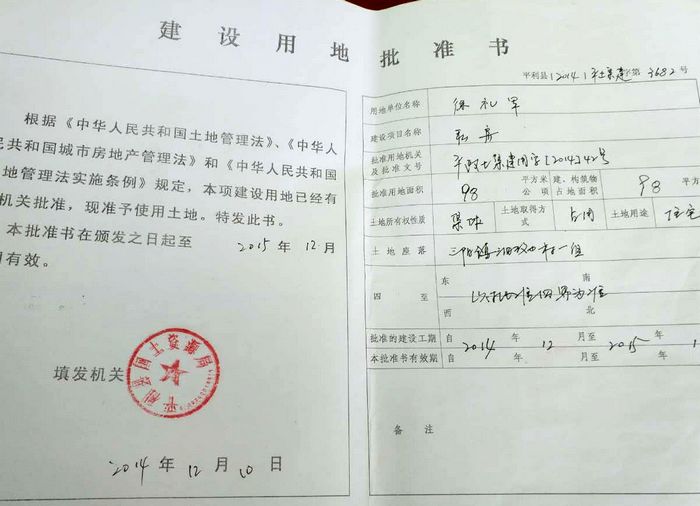 建设用地批准书
根据《中华人民共和国土地管理法》、《中华人
民共和国城市房地产管理法》和《中华人民共和国
地管理法实施条例》规定，本项建设用地已经有
机关批准，现准予使用土地。特发此书。
本批准书在颁发之日起至 2015 年 12 月
有效。
平利县国土资源局
填发机关
2014 年 12 月 10 日
平利县（2014）平土集建字第 3682 号
用地单位名称 徐礼军
建设项目名称 私房
批准用地机关及批准文号 平政土集建用字[2014]42号
批准用地面积 98 平方米 公顷 建、构筑物占地面积 98 平方
土地所有权性质 集体 土地取得方式 占用 土地用途 住宅
土地座落 三阳镇 村一组
四至 东 南 西 北 以 四界为准
批准的建设工期 自 2014 年 12 月至 2015 年 1
本批准书有效期 自 年 月至 年
备注